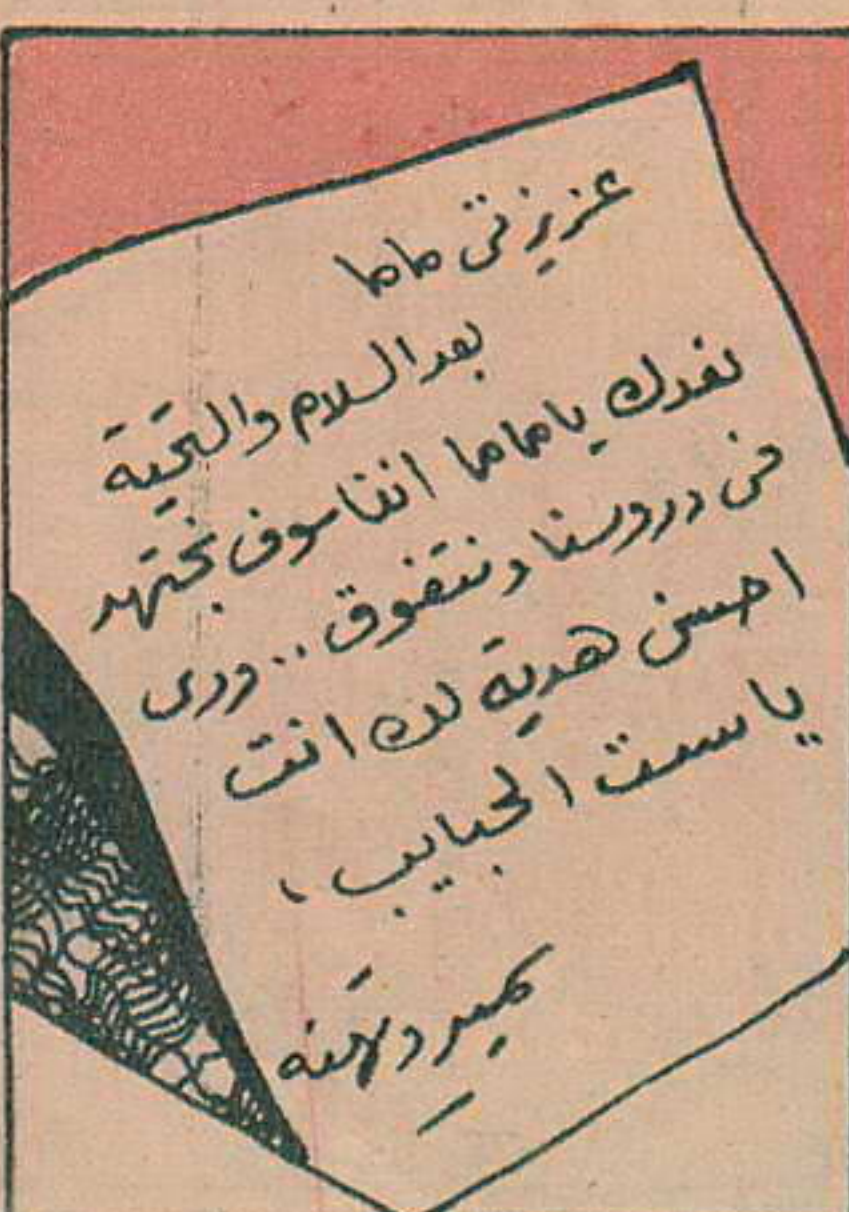 عزيزتى ماما
بعد السلام والتحية
نعدك ياماما اننا سوف نجتهد
فى دروسنا ونتفوق .. ودى
احسن هدية لك انت
ياست الحبايب ،
سمير و